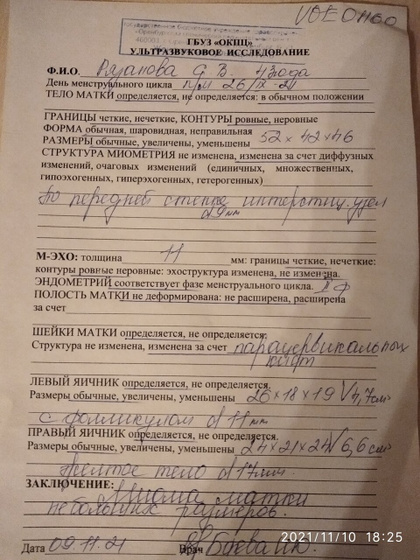 VDEO1160
ГБУЗ «ОКПЦ»
УЛЬТРАЗВУКОВОЕ ИССЛЕДОВАНИЕ
Ф.И.О. С. В. 43 года
День менструального цикла п/м 26/IX-21
ТЕЛО МАТКИ определяется, не определяется: в обычном положении
ГРАНИЦЫ четкие, нечеткие, КОНТУРЫ ровные, неровные
ФОРМА обычная, шаровидная, неправильная
РАЗМЕРЫ обычные, увеличены, уменьшены 52×42×46
СТРУКТУРА МИОМЕТРИЯ не изменена, изменена за счет диффузных
изменений, очаговых изменений (единичных, множественных,
гипоэхогенных, гиперэхогенных, гетерогенных)
По передней стенке интерстиц. узел
d 9 мм
М-ЭХО: толщина 11 мм: границы четкие, нечеткие:
контуры ровные неровные: эхоструктура изменена, не изменена.
ЭНДОМЕТРИЙ соответствует фазе менструального цикла. II ф
ПОЛОСТЬ МАТКИ не деформирована: не расширена, расширена
за счет
ШЕЙКИ МАТКИ определяется, не определяется.
Структура не изменена, изменена за счет парацервикальных
кист
ЛЕВЫЙ ЯИЧНИК определяется, не определяется.
Размеры обычные, увеличены, уменьшены 26×18×19 V 4,7см³
с фолликулом d 11 мм
ПРАВЫЙ ЯИЧНИК определяется, не определяется.
Размеры обычные, увеличены, уменьшены 24×21×24 V 6,6 см³
желтое тело d 17мм
ЗАКЛЮЧЕНИЕ: Миома матки
небольших размеров.
Дата 09.11.21 Врач
2021/11/10 18:25